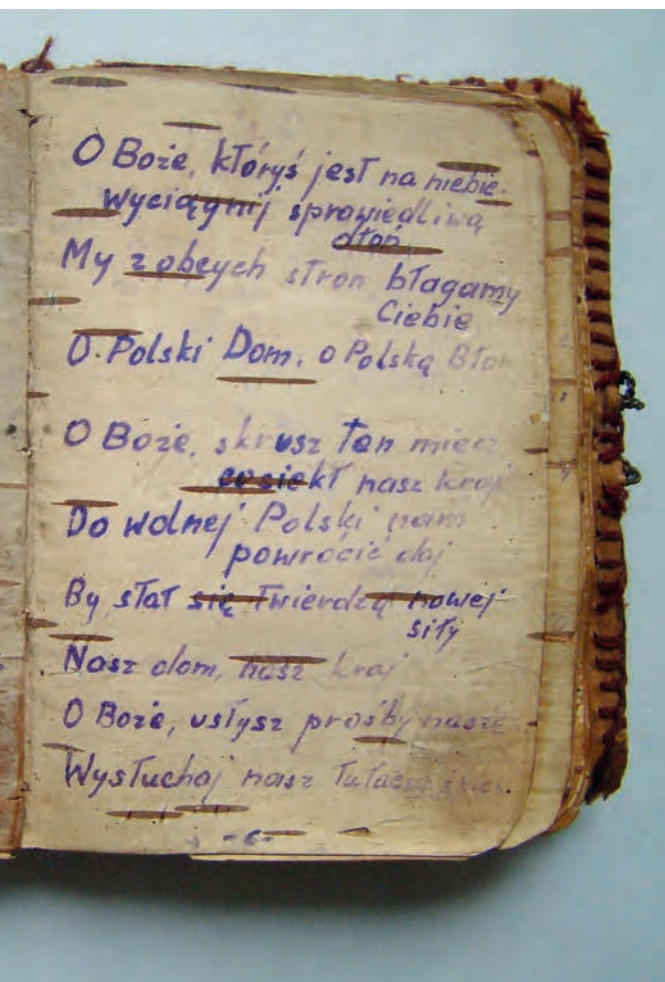 O Boże, któryś jest na niebie.
wyciągnij sprawiedliwą
dłoń
My z obcych stron błagamy
Ciebie
O Polski Dom, o Polską Broń
O Boże, skrusz ten miecz
co siekł nasz kraj
Do wolnej Polski nam
powrócić daj
By stał się Twierdzą nowej
siły
Nasz dom, nasz kraj
O Boże, usłysz prośby nasze
Wysłuchaj nasz tułaczy śpiew.
-6-